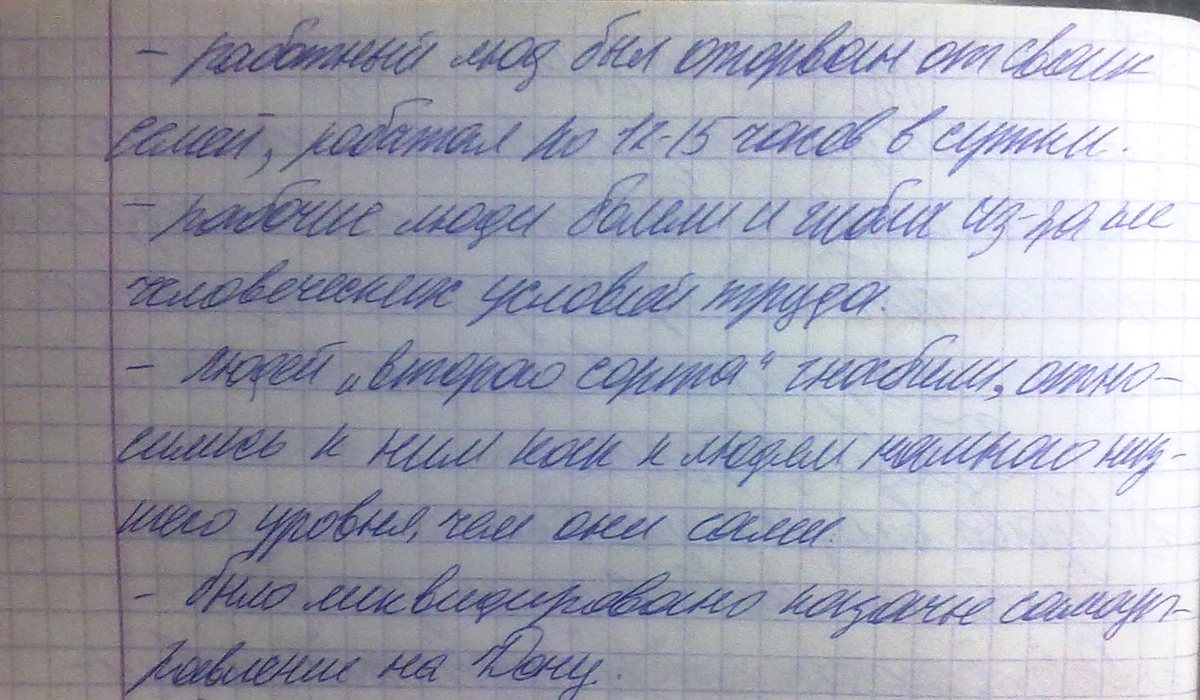 - работный люд был оторван от своих
семей, работал по 12-15 часов в сутки.
- рабочие люди болели и гибли из-за не
человеческих условий труда.
- людей „второго сорта“ гнобили, отно-
сились к ним как к людям намного низ-
шего уровня, чем они сами.
- было ликвидировано казачье самоуп-
равление на Дону.